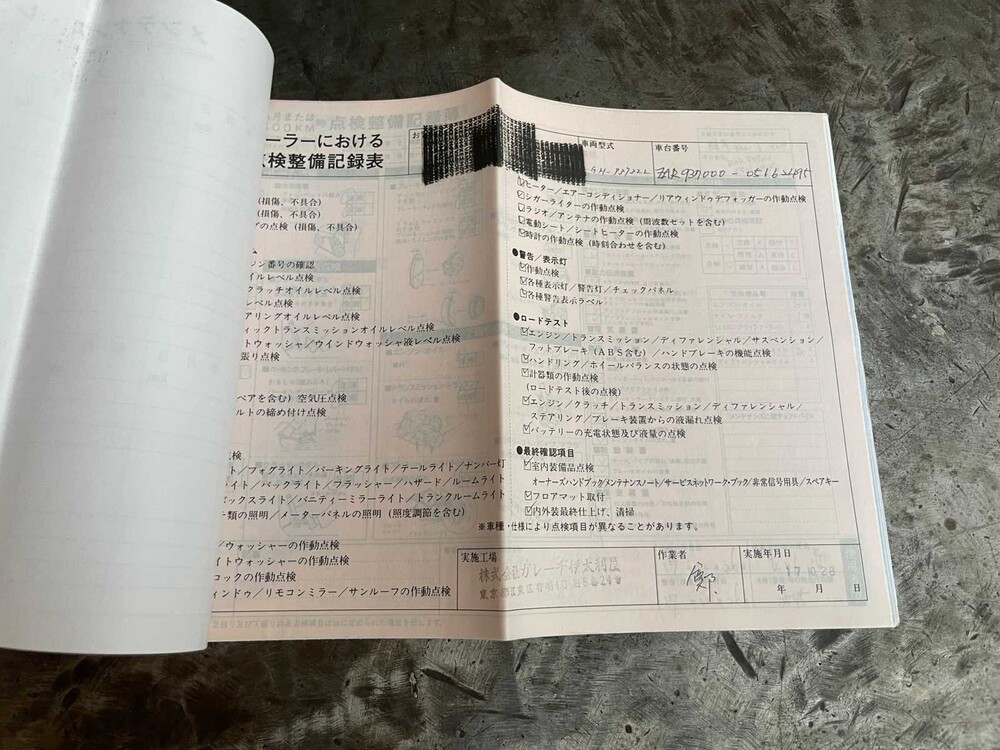 ーラーにおける
点検整備記録表
車両型式
車台番号
GH-93722L
ZAR937000-05162495
(損傷、不具合)
(損傷、不具合)
の点検(損傷、不具合)
ン番号の確認
イルレベル点検
クラッチオイルレベル点検
レベル点検
アリングオイルレベル点検
ィックトランスミッションオイルレベル点検
トウォッシャ/ウインドウォッシャ液レベル点検
張り点検
ペアを含む)空気圧点検
ルトの締め付け点検
検
ト/フォグライト/パーキングライト/テールライト/ナンバー灯
イト/バックライト/フラッシャー/ハザード/ルームライト
バックスライト/バニティーミラーライト/トランクルームライト
類の照明/メーターパネルの照明(照度調節を含む)
/ウォッシャーの作動点検
イトウォッシャーの作動点検
コックの作動点検
ィンドゥ/リモコンミラー/サンルーフの作動点検
☑ヒーター/エアーコンディショナー/リアウィンドゥデフォッガーの作動点検
☑シガーライターの作動点検
☑ラジオ/アンテナの作動点検(周波数セットを含む)
☑電動シート/シートヒーターの作動点検
☑時計の作動点検(時刻合わせを含む)
●警告/表示灯
☑作動点検
☑各種表示灯/警告灯/チェックパネル
☑各種警告表示ラベル
●ロードテスト
☑エンジン/トランスミッション/ディファレンシャル/サスペンション/
フットブレーキ(ABS含む)/ハンドブレーキの機能点検
☑ハンドリング/ホイールバランスの状態の点検
☑計器類の作動点検
(ロードテスト後の点検)
☑エンジン/クラッチ/トランスミッション/ディファレンシャル/
ステアリング/ブレーキ装置からの液漏れ点検
☑バッテリーの充電状態及び液量の点検
●最終確認項目
☑室内装備品点検
オーナーズハンドブック/メンテナンスノート/サービスネットワーク・ブック/非常信号用具/スペアキー
☑フロアマット取付
☑内外装最終仕上げ、清掃
※車種・仕様により点検項目が異なることがあります。
実施工場
株式会社ガレーヂ伊太利屋
東京都江東区有明1丁目5番24号
作業者
実施年月日
17.10.28
年 月 日